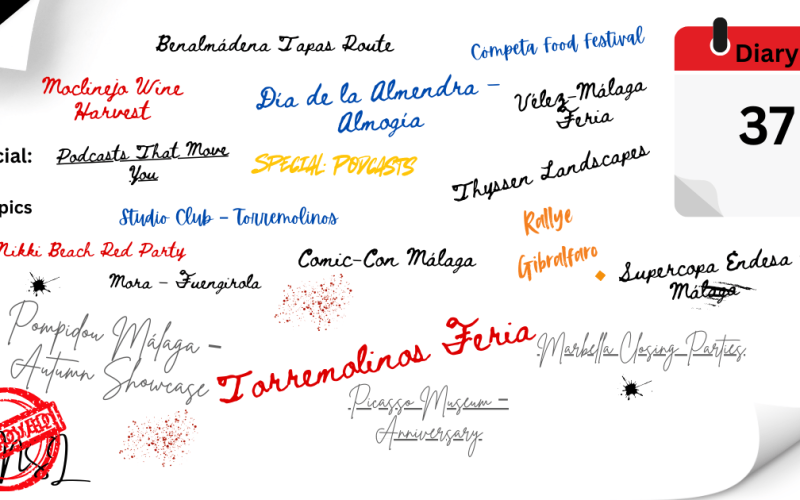 Benalmádena Tapas Route
Competa Food Festival
Diary
Moclinejo Wine
Harvest
Día de la Almendra –
Almogía
Vélez-Málaga
Feria
37
cial:
Podcasts That Move
You
SPECIAL: PODCASTS
Thyssen Landscapes
pics
Studio Club – Torremolinos
Rallye
Gibralfaro
Nikki Beach Red Party
Mora – Fuengirola
Comic-Con Málaga
Supercopa Endesa
Málaga
Pompidou Málaga –
Autumn Showcase
Torremolinos Feria
Marbella Closing Parties.
Picasso Museum –
Anniversary.